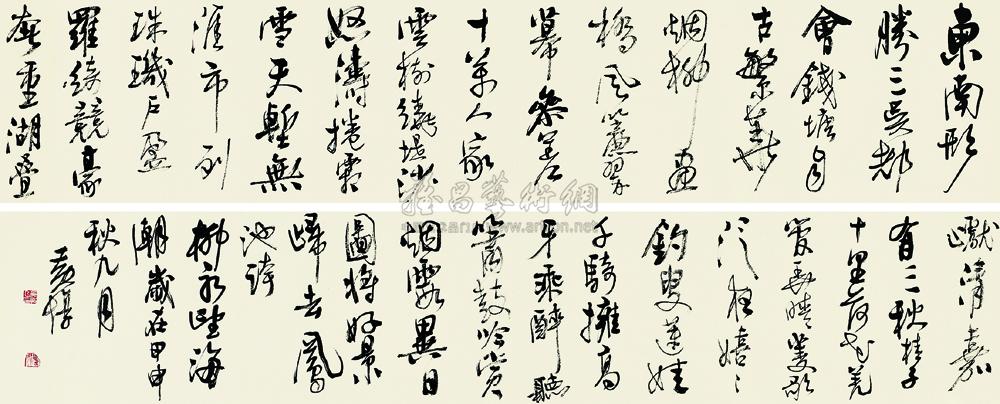 東南形
勝三吳都
會錢塘自
古繁華
烟柳畫
橋風簾翠
幕參差
十萬人家
雲樹繞堤沙
怒濤捲霜
雪天塹無
涯市列
珠璣戶盈
羅綺競豪
奢重湖疊
巘清嘉
有三秋桂子
十里荷花羌
管弄晴菱歌
泛夜嬉〻
釣叟蓮娃
千騎擁高
牙乘醉聽
簫鼓吟賞
烟霞異日
圖將好景
歸去鳳
池誇
柳永望海
潮歲在甲申
秋九月
黃惇